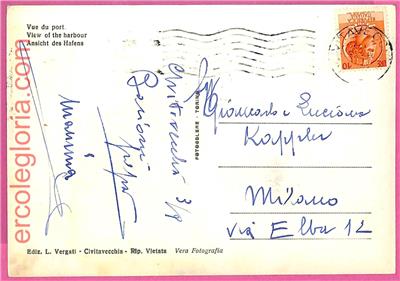 Vue du port
View of the harbour
Ansicht des Hafens
Civitavecchia 3/8
Bacioni
mamma
Giancarlo e Luciana
Kappler
Milano
via Elba 12
FOTOCELERE - TORINO
Ediz. L. Vergati - Civitavecchia - Rip. Vietata Vera Fotografia
ercolegloria.com